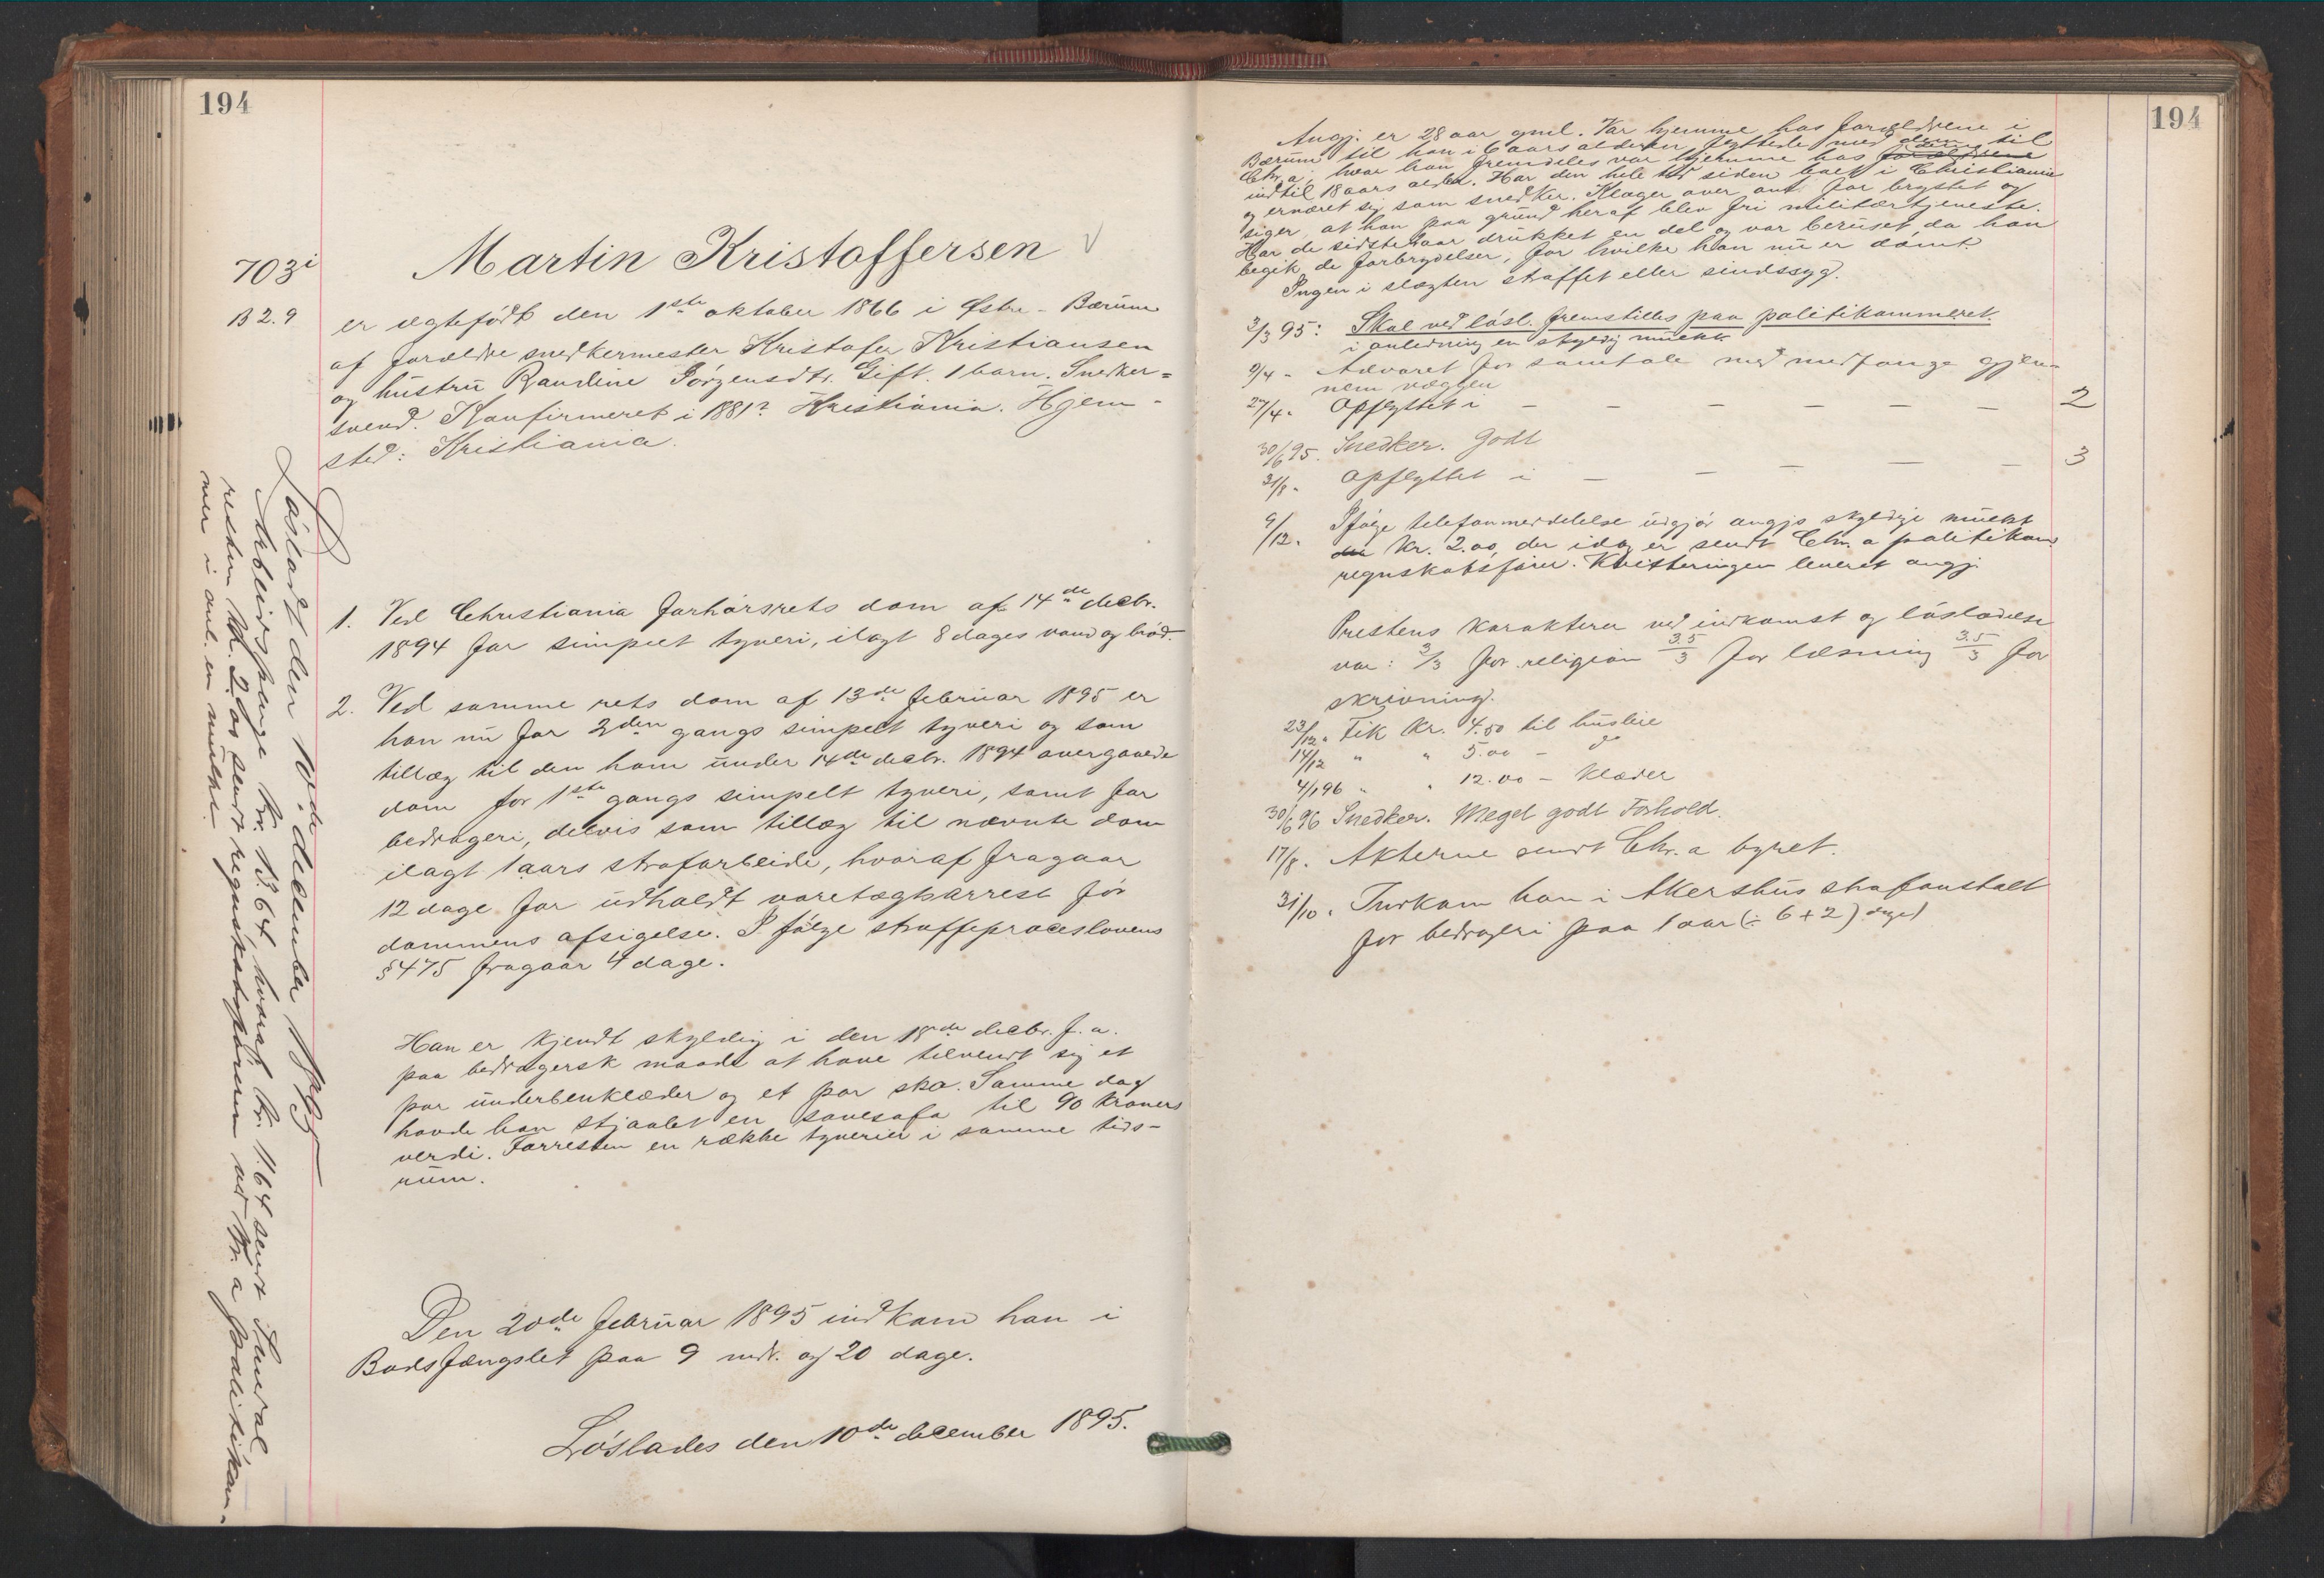 194
703i
B 2.9
Martin Kristoffersen
er ægtefødt den 1ste oktober 1866 i Østre-Bærum
af forældre snedkermester Kristofer Kristiansen
og hustru Randine Jörgensdtr. Gift. 1 barn. Snedker=
svend. Konfirmeret i 1881? Kristiania. Hjem-
sted: Kristiania.
1. Ved Christiania forhörsrets dom af 14de decbr.
1894 for simpelt tyveri, ilagt 8 dages vand og bröd.
2. Ved samme rets dom af 13de februar 1895 er
han nu for 2den gangs simpelt tyveri og som
tillæg til den ham under 14de decbr. 1894 overgaaede
dom for 1ste gangs simpelt tyveri, samt for
bedrageri, delvis som tillæg til nævnte dom
ilagt 1 aars strafarbeide, hvoraf fragaar
12 dage for udholdt varetægtsarrest för
dommens afsigelse. I fölge straffeproceslovens
§ 475 fragaar 4 dage.
Han er kjendt skyldig i den 18de decbr. f. a.
paa bedragersk maade at have tilvendt sig et
par underbenklæder og et par sko. Samme dag
havde han stjaalet en sovesofa til 90 kroners
verdi. Forresten en række tyverier i samme tids-
rum.
Den 20de februar 1895 indkom han i
Bodsfængslet paa 9 mdr. og 20 dage.
Löslades den 10de december 1895.
Lösladt den 10de december 1895
Arbeidspenge kr. 13.64, hvoraf kr. 11.64 sendt
resten kr. 2.00 sendt regnskabsföreren ved Kr.a politikam-
mer i anl. en mulkt.
194
Angj. er 28 aar gml. Var hjemme hos forældrene i
Bærum til han i 6 aars alderen flyttede med dem til
Chr.a, hvor han fremdeles var hjemme hos forældrene dem
indtil 18 aars alder. Har den hele tid siden boet i Christiania
og ernæret sig som snedker. Klager over ondt for brystet og
siger, at han paa grund heraf blev fri militærtjeneste.
Har de sidste aar drukket en del og var beruset, da han
begik de forbrydelser, for hvilke han nu er dömt.
Ingen i slægten straffet eller sindssyg.
2/3 95: Skal ved lösl. fremstilles paa politikammeret.
i anledning en skyldig mulkt
9/4 - Advaret for samtale med medfange gjen-
nem væggen
27/4 - Opflyttet i — — — — — — 2
30/6 95. Snedker. Godt
31/8 - Opflyttet i — — — — — 3
9/12. Ifölge telefonmeddelelse udgjör angjs skyldige mulkt
kr. 2.00, der idag er sendt Chr.a politikam.
regnskabsförer. Kvitteringen leveret angj.
Prestens karakterer ved indkomst og lösladelse
var: 3/3 for religion 3.5/3 for læsning 3.5/3 for
skrivning.
23/12. Fik kr. 4.50 til husleie
14/12 " " 5.00 - do
4/1 96 " " 12.00 - klæder
30/6 96 Snedker. Meget godt Forhold.
17/8. Akterne sendt Chr.a byret.
31/10. Indkom han i Akershus strafanstalt
for bedrageri paa 1 aar (÷ 6+2) dage)